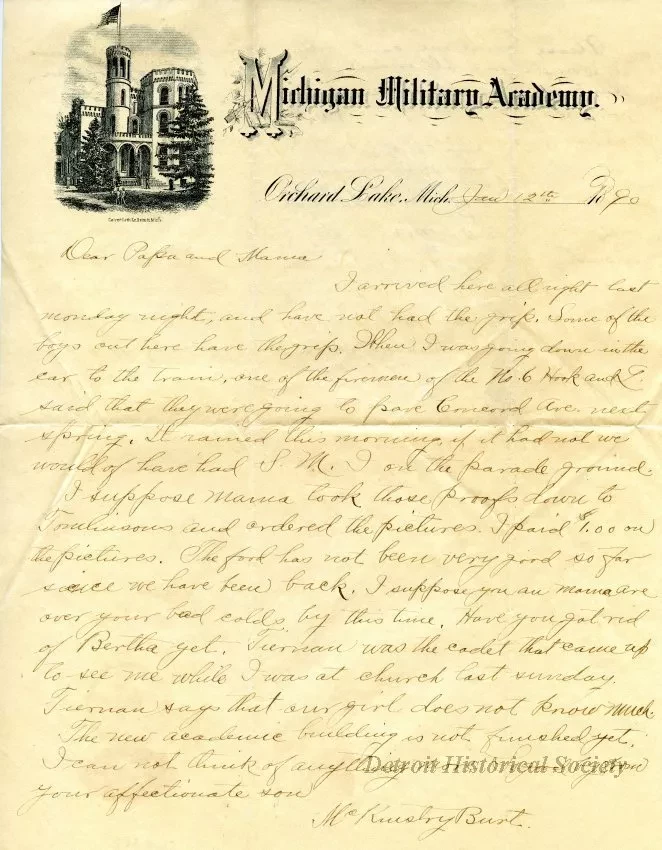 Michigan Military Academy.
Orchard Lake, Mich. Jan 12th 1890
Dear Papa and Mama
I arrived here all right last
monday night, and have not had the grip. Some of the
boys out here have the grip. When I was going down in the
car to the train, one of the firemen of the No. 6 Hook and L.
said that they were going to pave Concord Ave. next
spring. It rained this morning, if it had not we
would of have had S. M. I on the parade ground.
I suppose mama took those proofs down to
Tomlinsons and ordered the pictures. I paid $1.00 on
the pictures. The food has not been very good so far
since we have been back. I suppose you an mama are
over your bad colds by this time. Have you got rid
of Bertha yet. Tiernan was the cadet that came up
to see me while I was at church last sunday.
Tiernan says that our girl does not know much.
The new academic building is not finished yet.
I can not think of anything
Detroit Historical Society
your affectionate son
McKinstry Burt.